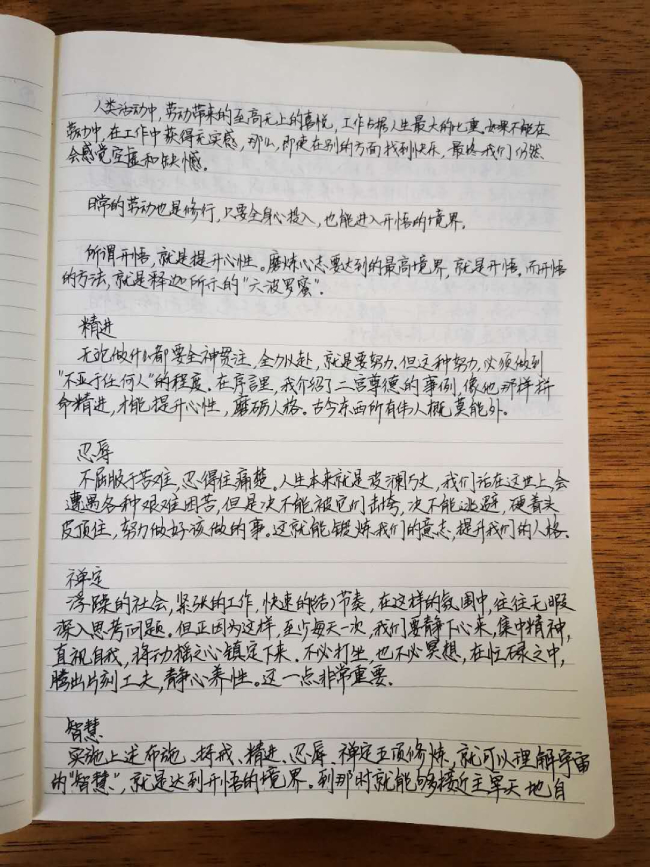 人类活动中,劳动带来的至高无上的喜悦,工作占据人生最大的比重,如果不能在
劳动中,在工作中获得充实感,那么,即使在别的方面找到快乐,最终我们仍然
会感觉空虚和缺憾。
日常的劳动也是修行,只要全身心投入,也能进入开悟的境界。
所谓开悟,就是提升心性。磨炼心志要达到的最高境界,就是开悟。而开悟
的方法,就是释迦所示的"六波罗蜜"。
精进
无论做什么都要全神贯注,全力以赴,就是要努力。但这种努力,必须做到
"不亚于任何人"的程度。在序言里,我介绍了二宫尊德的事例,像他那样拼
命精进,才能提升心性,磨砺人格。古今东西所有伟人概莫能外。
忍辱
不屈服于苦难,忍得住痛楚。人生本来就是波澜万丈,我们活在这世上,会
遭遇各种艰难困苦,但是决不能被它们击垮,决不能逃避,硬着头
皮顶住,努力做好该做的事。这就能锻炼我们的意志,提升我们的人格。
禅定
浮躁的社会,紧张的工作,快速的活节奏,在这样的氛围中,往往无暇
深入思考问题。但正因为这样,至少每天一次,我们要静下心来,集中精神,
直视自我,将动摇之心镇定下来。不必打坐,也不必冥想,在忙碌之中,
腾出片刻工夫,静心养性。这一点非常重要。
智慧
实施上述布施、持戒、精进、忍辱、禅定五项修炼,就可以理解宇宙
的"智慧",就是达到开悟的境界。到那时就能够接近主宰天地自